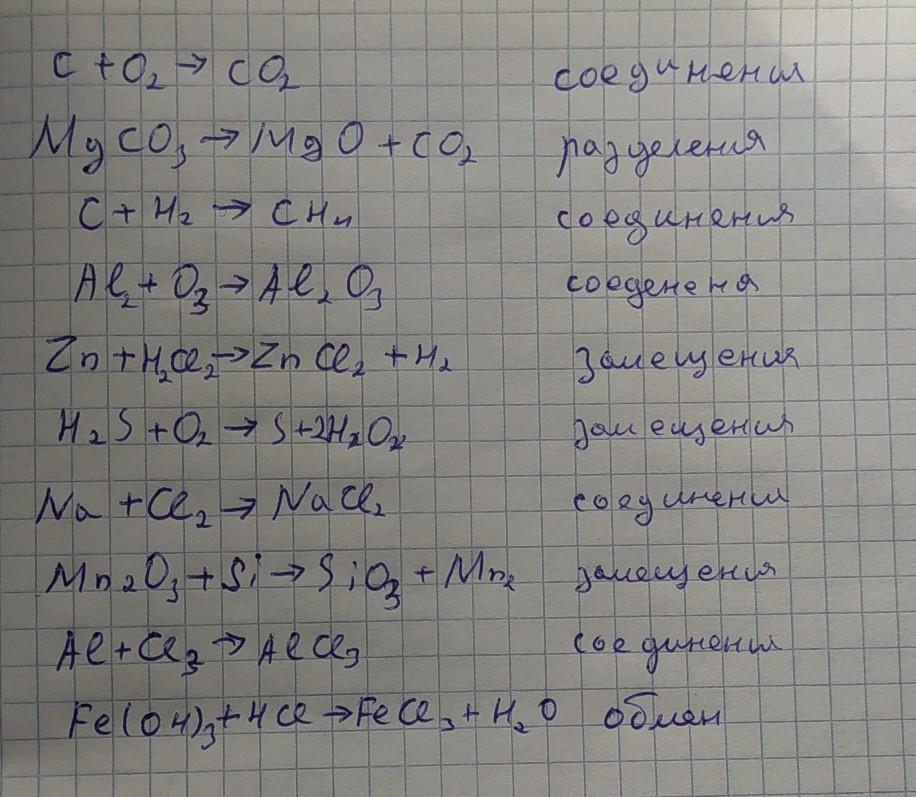 C + O₂ → CO₂ соединения
MgCO₃ → MgO + CO₂ разделения
C + H₂ → CH₄ соединения
Al₂ + O₃ → Al₂O₃ соеденения
Zn + H₂Cl₂ → ZnCl₂ + H₂ замещения
H₂S + O₂ → S + 2H₂O₂ замещения
Na + Cl₂ → NaCl₂ соединения
Mn₂O₃ + Si → SiO₃ + Mn₂ замещения
Al + Cl₃ → AlCl₃ соединения
Fe(OH)₃ + HCl → FeCl₃ + H₂O обмен